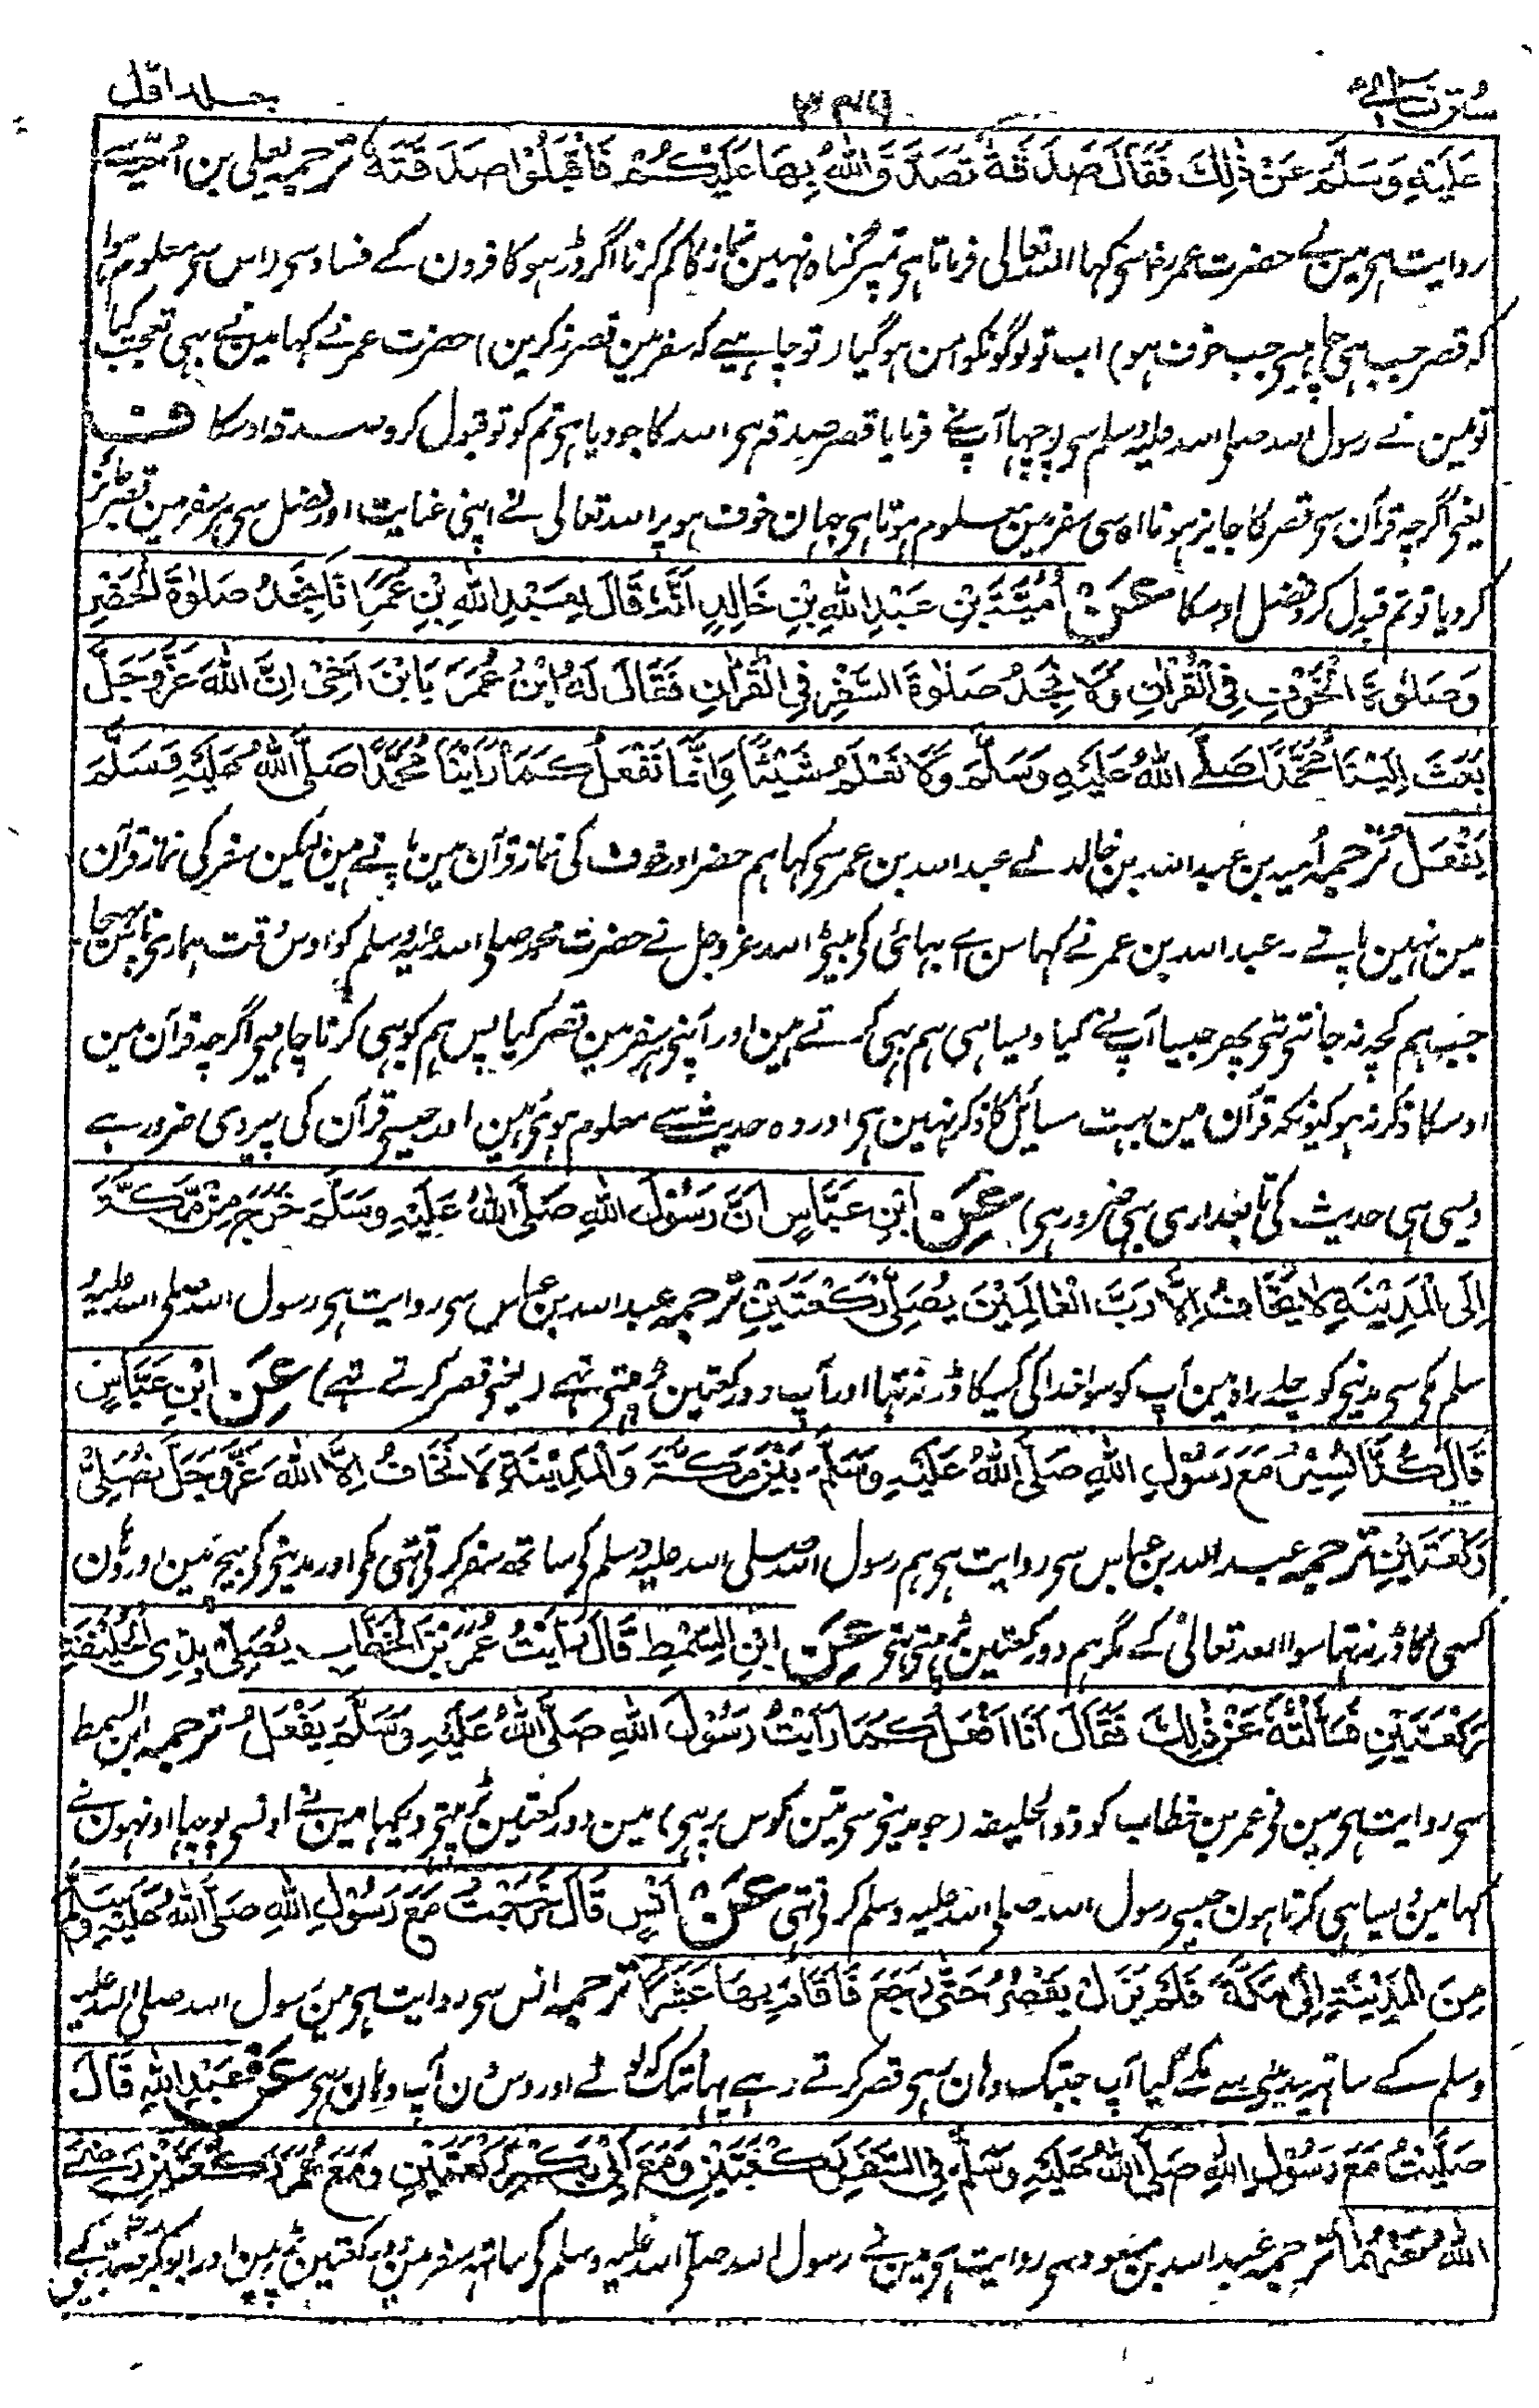 سنن نسائی ۳۴۶ جلد اول
عَلَيْهِ وَسَلَّمَ عَنْ ذٰلِكَ فَقَالَ صَدَقَةٌ تَصَدَّقَ اللهُ بِهَا عَلَيْكُمْ فَاقْبَلُوْا صَدَقَتَهٗ ترجمہ یعلی بن اُمیّہ سے
روایت ہی مین نے حضرت عمر رض سی کہا اللہ تعالی فرماتا ہی تمپر گناہ نہین نماز کا کم کرنا اگر ڈر ہو کافرون کے فساد سی (اس سی معلوم ہوا
کہ قصر جب ہی چاہیی جب خوف ہو) اب تو لوگونکو امن ہو گیا (تو چاہیے کہ سفر مین قصر نہ کرین) حضرت عمر نے کہا مین نے بہی تعجب کیا
تو مین نے رسول اللہ صلی اللہ علیہ وسلم سی پوچہا آپنے فرمایا قصر صدقہ ہی اللہ کا جو دیا ہی تم کو تو قبول کرو صدقہ اوسکا ف
یعنی اگرچہ قرآن سی قصر کا جایز ہونا اوسی سفر مین معلوم ہوتا ہی جہان خوف ہو پر اللہ تعالی نے اپنی عنایت اور فضل سی ہر سفر مین قصر جائز
کر دیا تو تم قبول کرو فضل اوسکا عَنْ اُمَيَّةَ بْنِ عَبْدِ اللهِ بْنِ خَالِدٍ اَنَّهٗ قَالَ لِعَبْدِ اللهِ بْنِ عُمَرَ اِنَّا نَجِدُ صَلٰوةَ الْحَضَرِ
وَصَلٰوةَ الْخَوْفِ فِي الْقُرْاٰنِ وَلَا نَجِدُ صَلٰوةَ السَّفَرِ فِي الْقُرْاٰنِ فَقَالَ لَهُ ابْنُ عُمَرَ يَا ابْنَ اَخِيْ اِنَّ اللهَ عَزَّ وَجَلَّ
بَعَثَ اِلَيْنَا مُحَمَّدًا صَلَّى اللهُ عَلَيْهِ وَسَلَّمَ وَلَا نَعْلَمُ شَيْئًا وَاِنَّمَا نَفْعَلُ كَمَا رَاَيْنَا مُحَمَّدًا صَلَّى اللهُ عَلَيْهِ وَسَلَّمَ
يَفْعَلُ ترجمہ اُمیہ بن عبد اللہ بن خالد نے عبد اللہ بن عمر سی کہا ہم حضر اور خوف کی نماز قرآن مین پاتے ہین لیکن سفر کی نماز قرآن
مین نہین پاتے ۔ عبد اللہ بن عمر نے کہا سن اے بہائی کی بیٹی اللہ عزوجل نے حضرت محمد صلی اللہ علیہ وسلم کو اوس وقت ہماری پاس بہیجا
جب ہم کچہ نہ جانتی تہی پھر جیسا آپ نے کیا ویسا ہی ہم بہی کرتے ہین اور آپنی سفر مین قصر کیا پس ہم کو بہی کرنا چاہیی اگرچہ قرآن مین
اوسکا ذکر نہ ہو کیونکہ قرآن مین بہت مسایل کا ذکر نہین ہی اور وہ حدیث سے معلوم ہوئی ہین اور جیسی قرآن کی پیروی ضرور ہے
ویسی ہی حدیث کی تابعداری بہی ضرور ہی) عَنِ ابْنِ عَبَّاسٍ اَنَّ رَسُوْلَ اللهِ صَلَّى اللهُ عَلَيْهِ وَسَلَّمَ خَرَجَ مِنْ مَّكَّةَ
اِلَى الْمَدِيْنَةِ لَا يَخَافُ اِلَّا رَبَّ الْعَالَمِيْنَ يُصَلِّيْ رَكْعَتَيْنِ ترجمہ عبد اللہ بن عباس سی روایت ہی رسول اللہ صلی اللہ علیہ
سلم مکی سی مدینی کو چلے راہ مین آپ کو سوا خدا کی کسیکا ڈر نہ تہا اور آپ دو رکعتین پڑہتی تہے (یعنی قصر کرتے تہے) عَنِ ابْنِ عَبَّاسٍ
قَالَ كُنَّا نَسِيْرُ مَعَ رَسُوْلِ اللهِ صَلَّى اللهُ عَلَيْهِ وَسَلَّمَ بَيْنَ مَكَّةَ وَالْمَدِيْنَةِ لَا نَخَافُ اِلَّا اللهَ عَزَّ وَجَلَّ نُصَلِّيْ
رَكْعَتَيْنِ ترجمہ عبد اللہ بن عباس سی روایت ہی ہم رسول اللہ صلی اللہ علیہ وسلم کی ساتھ سفر کرتی تہی مکی اور مدینی کی بیچ مین اور وہان
کسی کا ڈر نہ تہا سوا اللہ تعالیٰ کے مگر ہم دو رکعتین پڑہتی تہی عَنِ ابْنِ السِّمْطِ قَالَ رَاَيْتُ عُمَرَ بْنَ الْخَطَّابِ يُصَلِّيْ بِذِي الْحُلَيْفَةِ
رَكْعَتَيْنِ فَسَاَلْتُهٗ عَنْ ذٰلِكَ فَقَالَ اَنَا اَفْعَلُ كَمَا رَاَيْتُ رَسُوْلَ اللهِ صَلَّى اللهُ عَلَيْهِ وَسَلَّمَ يَفْعَلُ ترجمہ ابن السمط
سی روایت ہی مین نی عمر بن خطاب کو ذو الحلیفہ (جو مدینی سی تین کوس پر ہی) مین دو رکعتین پڑہتی دیکہا مین نے اونسی پوچہا اونہون نے
کہا مین ویسا ہی کرتا ہون جیسی رسول اللہ صلی اللہ علیہ وسلم کرتی تہی عَنْ اَنَسٍ قَالَ خَرَجْتُ مَعَ رَسُوْلِ اللهِ صَلَّى اللهُ عَلَيْهِ وَسَلَّمَ
مِنَ الْمَدِيْنَةِ اِلٰى مَكَّةَ فَلَمْ يَزَلْ يَقْصُرُ حَتّٰى رَجَعَ فَاَقَامَ بِهَا عَشْرًا ترجمہ انس سی روایت ہی مین رسول اللہ صلی اللہ علیہ
وسلم کے ساتہ مدینی سے مکے گیا آپ جبتک وہان رہی قصر کرتے رہے یہانتک کہ لوٹے اور دس دن آپ وہان رہی عَنْ عَبْدِ اللهِ قَالَ
صَلَّيْتُ مَعَ رَسُوْلِ اللهِ صَلَّى اللهُ عَلَيْهِ وَسَلَّمَ فِي السَّفَرِ رَكْعَتَيْنِ وَمَعَ اَبِيْ بَكْرٍ رَكْعَتَيْنِ وَمَعَ عُمَرَ رَكْعَتَيْنِ رَضِيَ
اللهُ عَنْهُمَا ترجمہ عبد اللہ بن مسعود سی روایت ہی مین نے رسول اللہ صلی اللہ علیہ وسلم کی ساتہ سفر مین دو رکعتین پڑہین اور ابو بکر صدیق کے